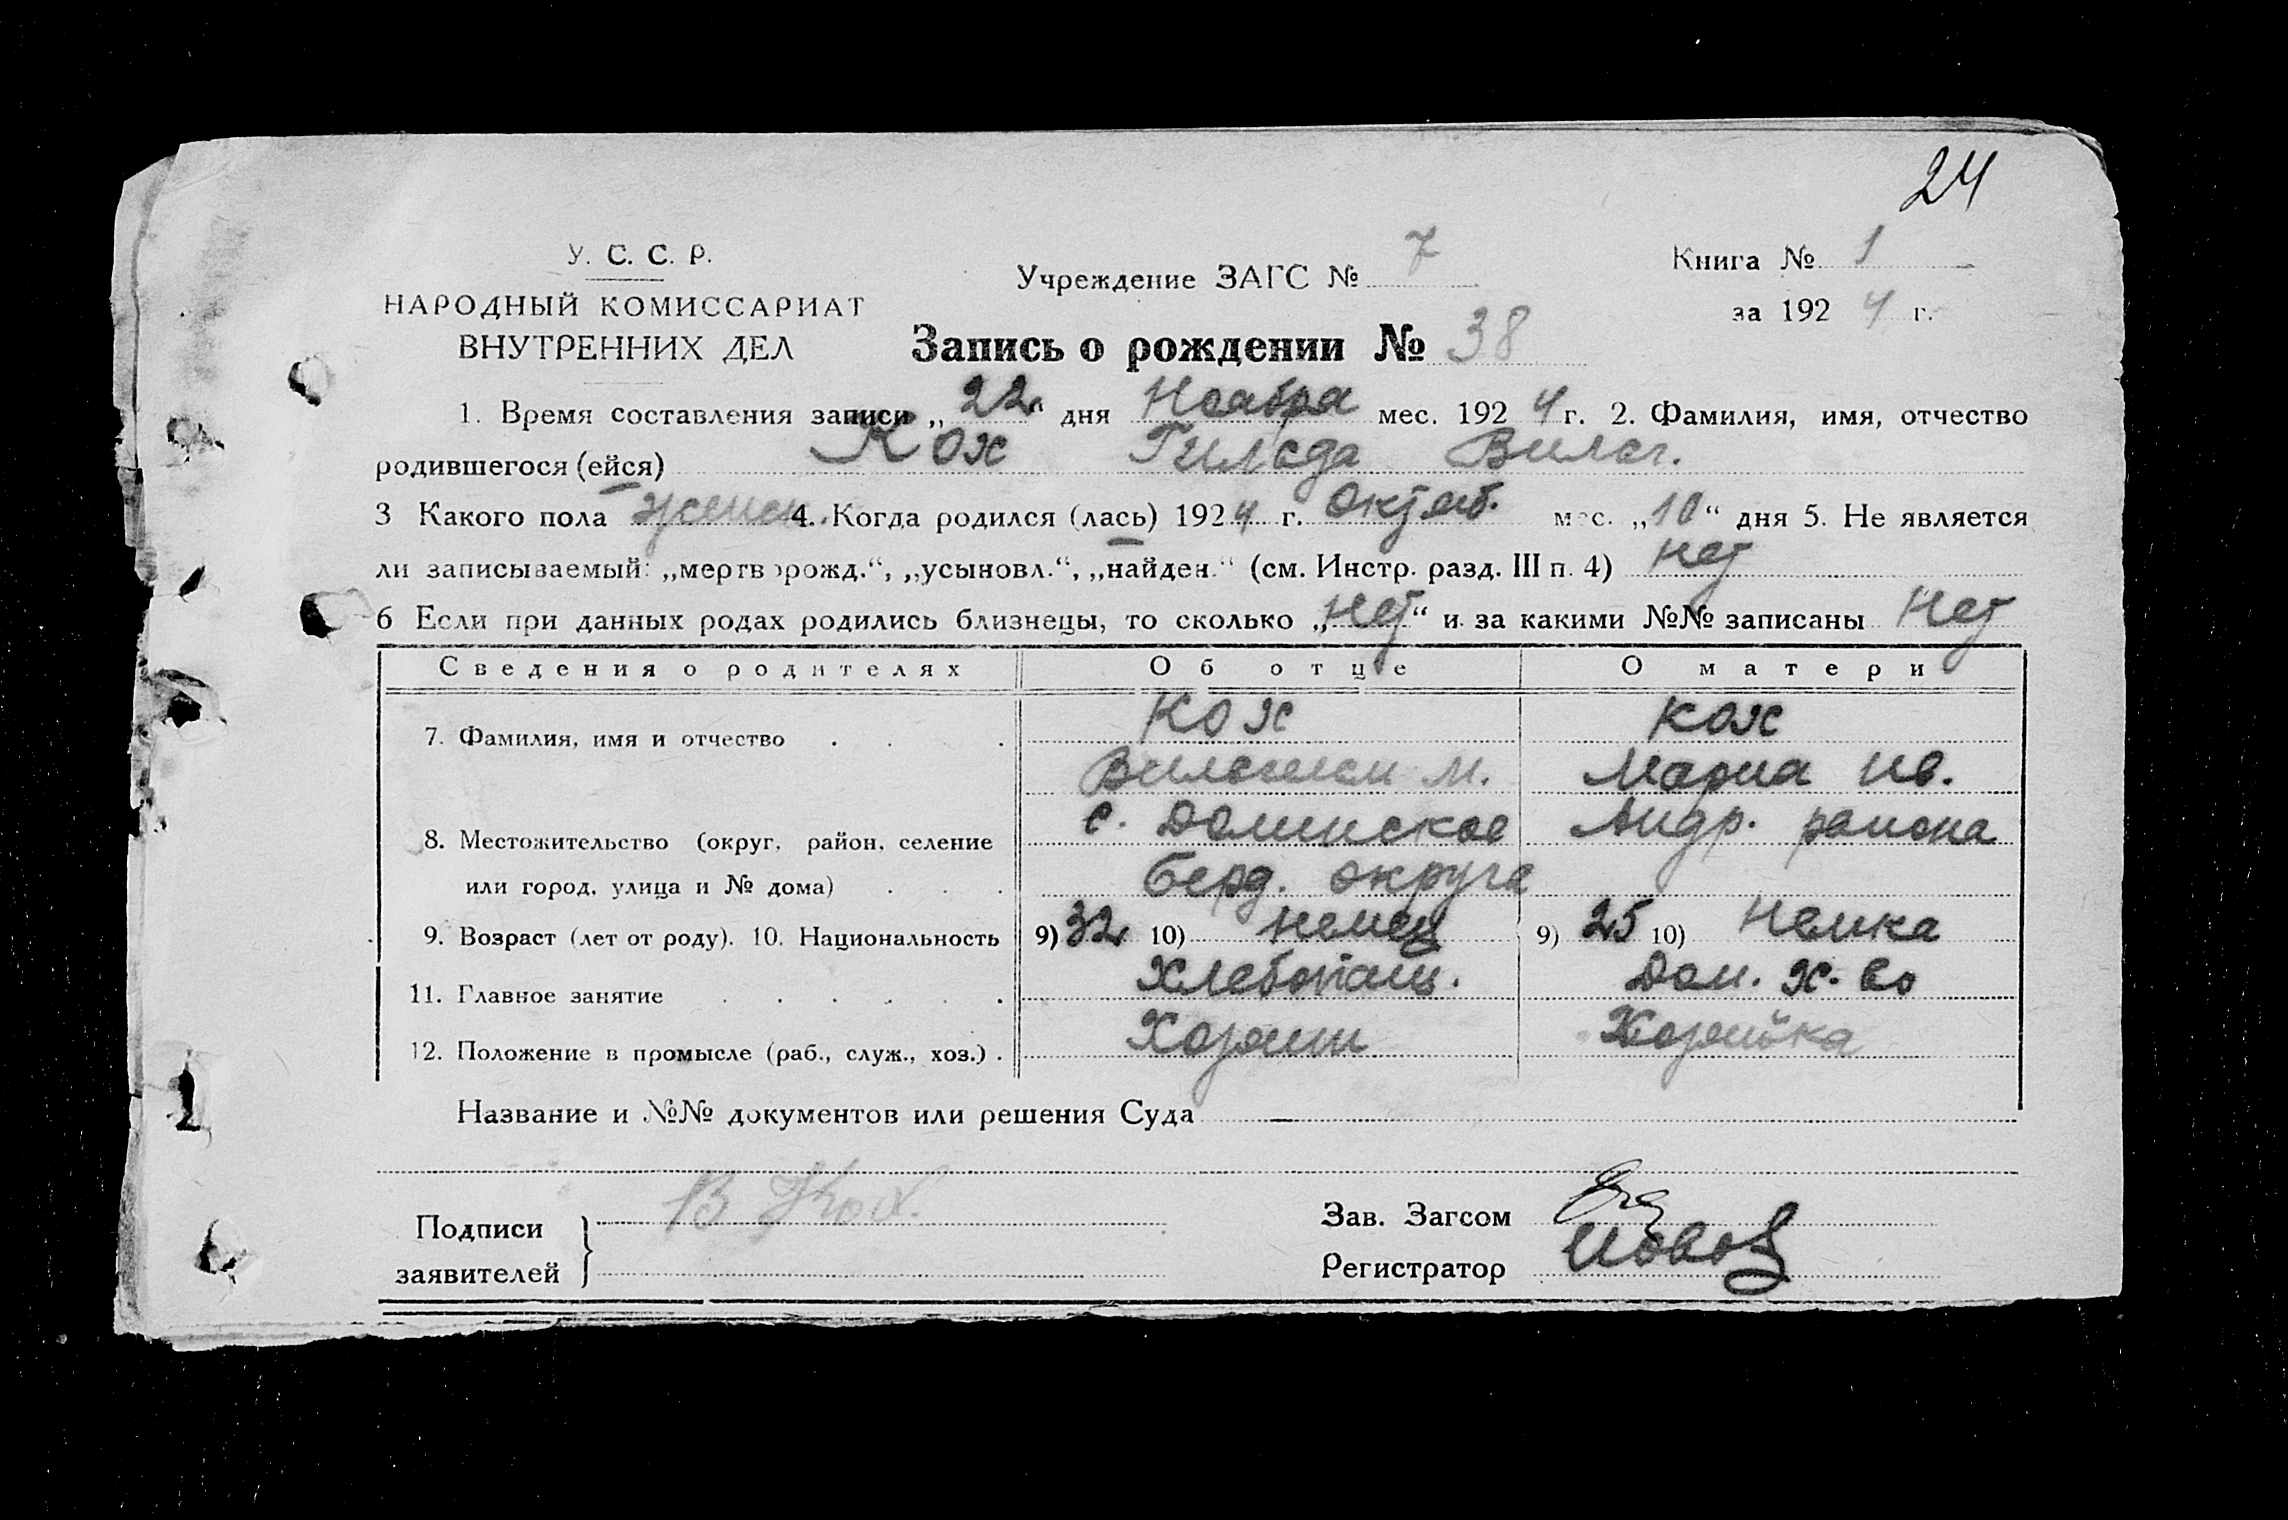 24
У. С. С. Р.
НАРОДНЫЙ КОМИССАРИАТ
ВНУТРЕННИХ ДЕЛ
Учреждение ЗАГС № 7
Книга № 1
за 1924 г.
Запись о рождении № 38
1. Время составления записи „22“ дня Ноября мес. 1924 г. 2. Фамилия, имя, отчество
родившегося (ейся) Кох Гильда Вильг.
3 Какого пола женск. 4. Когда родился (лась) 1924 г. Октяб. мес. „10“ дня 5. Не является
ли записываемый: „мертворожд.“, „усыновл.“, „найден.“ (см. Инстр. разд. III п. 4) нет
6 Если при данных родах родились близнецы, то сколько „нет“ и за какими №№ записаны нет
Сведения о родителях Об отце О матери
7. Фамилия, имя и отчество Кох Кох
Вильгельм М. Мария Ив.
с. Долинское Андр. района
8. Местожительство (округ, район, селение
или город, улица и № дома) Берд. округа
9. Возраст (лет от роду). 10. Национальность 9) 32 10) немец 9) 25 10) Немка
11. Главное занятие Хлебопаш. Дом. х-во
12. Положение в промысле (раб., служ., хоз.) Хозяин Хозяйка
Название и №№ документов или решения Суда —
Подписи
заявителей
В Koch
Зав. Загсом
Регистратор